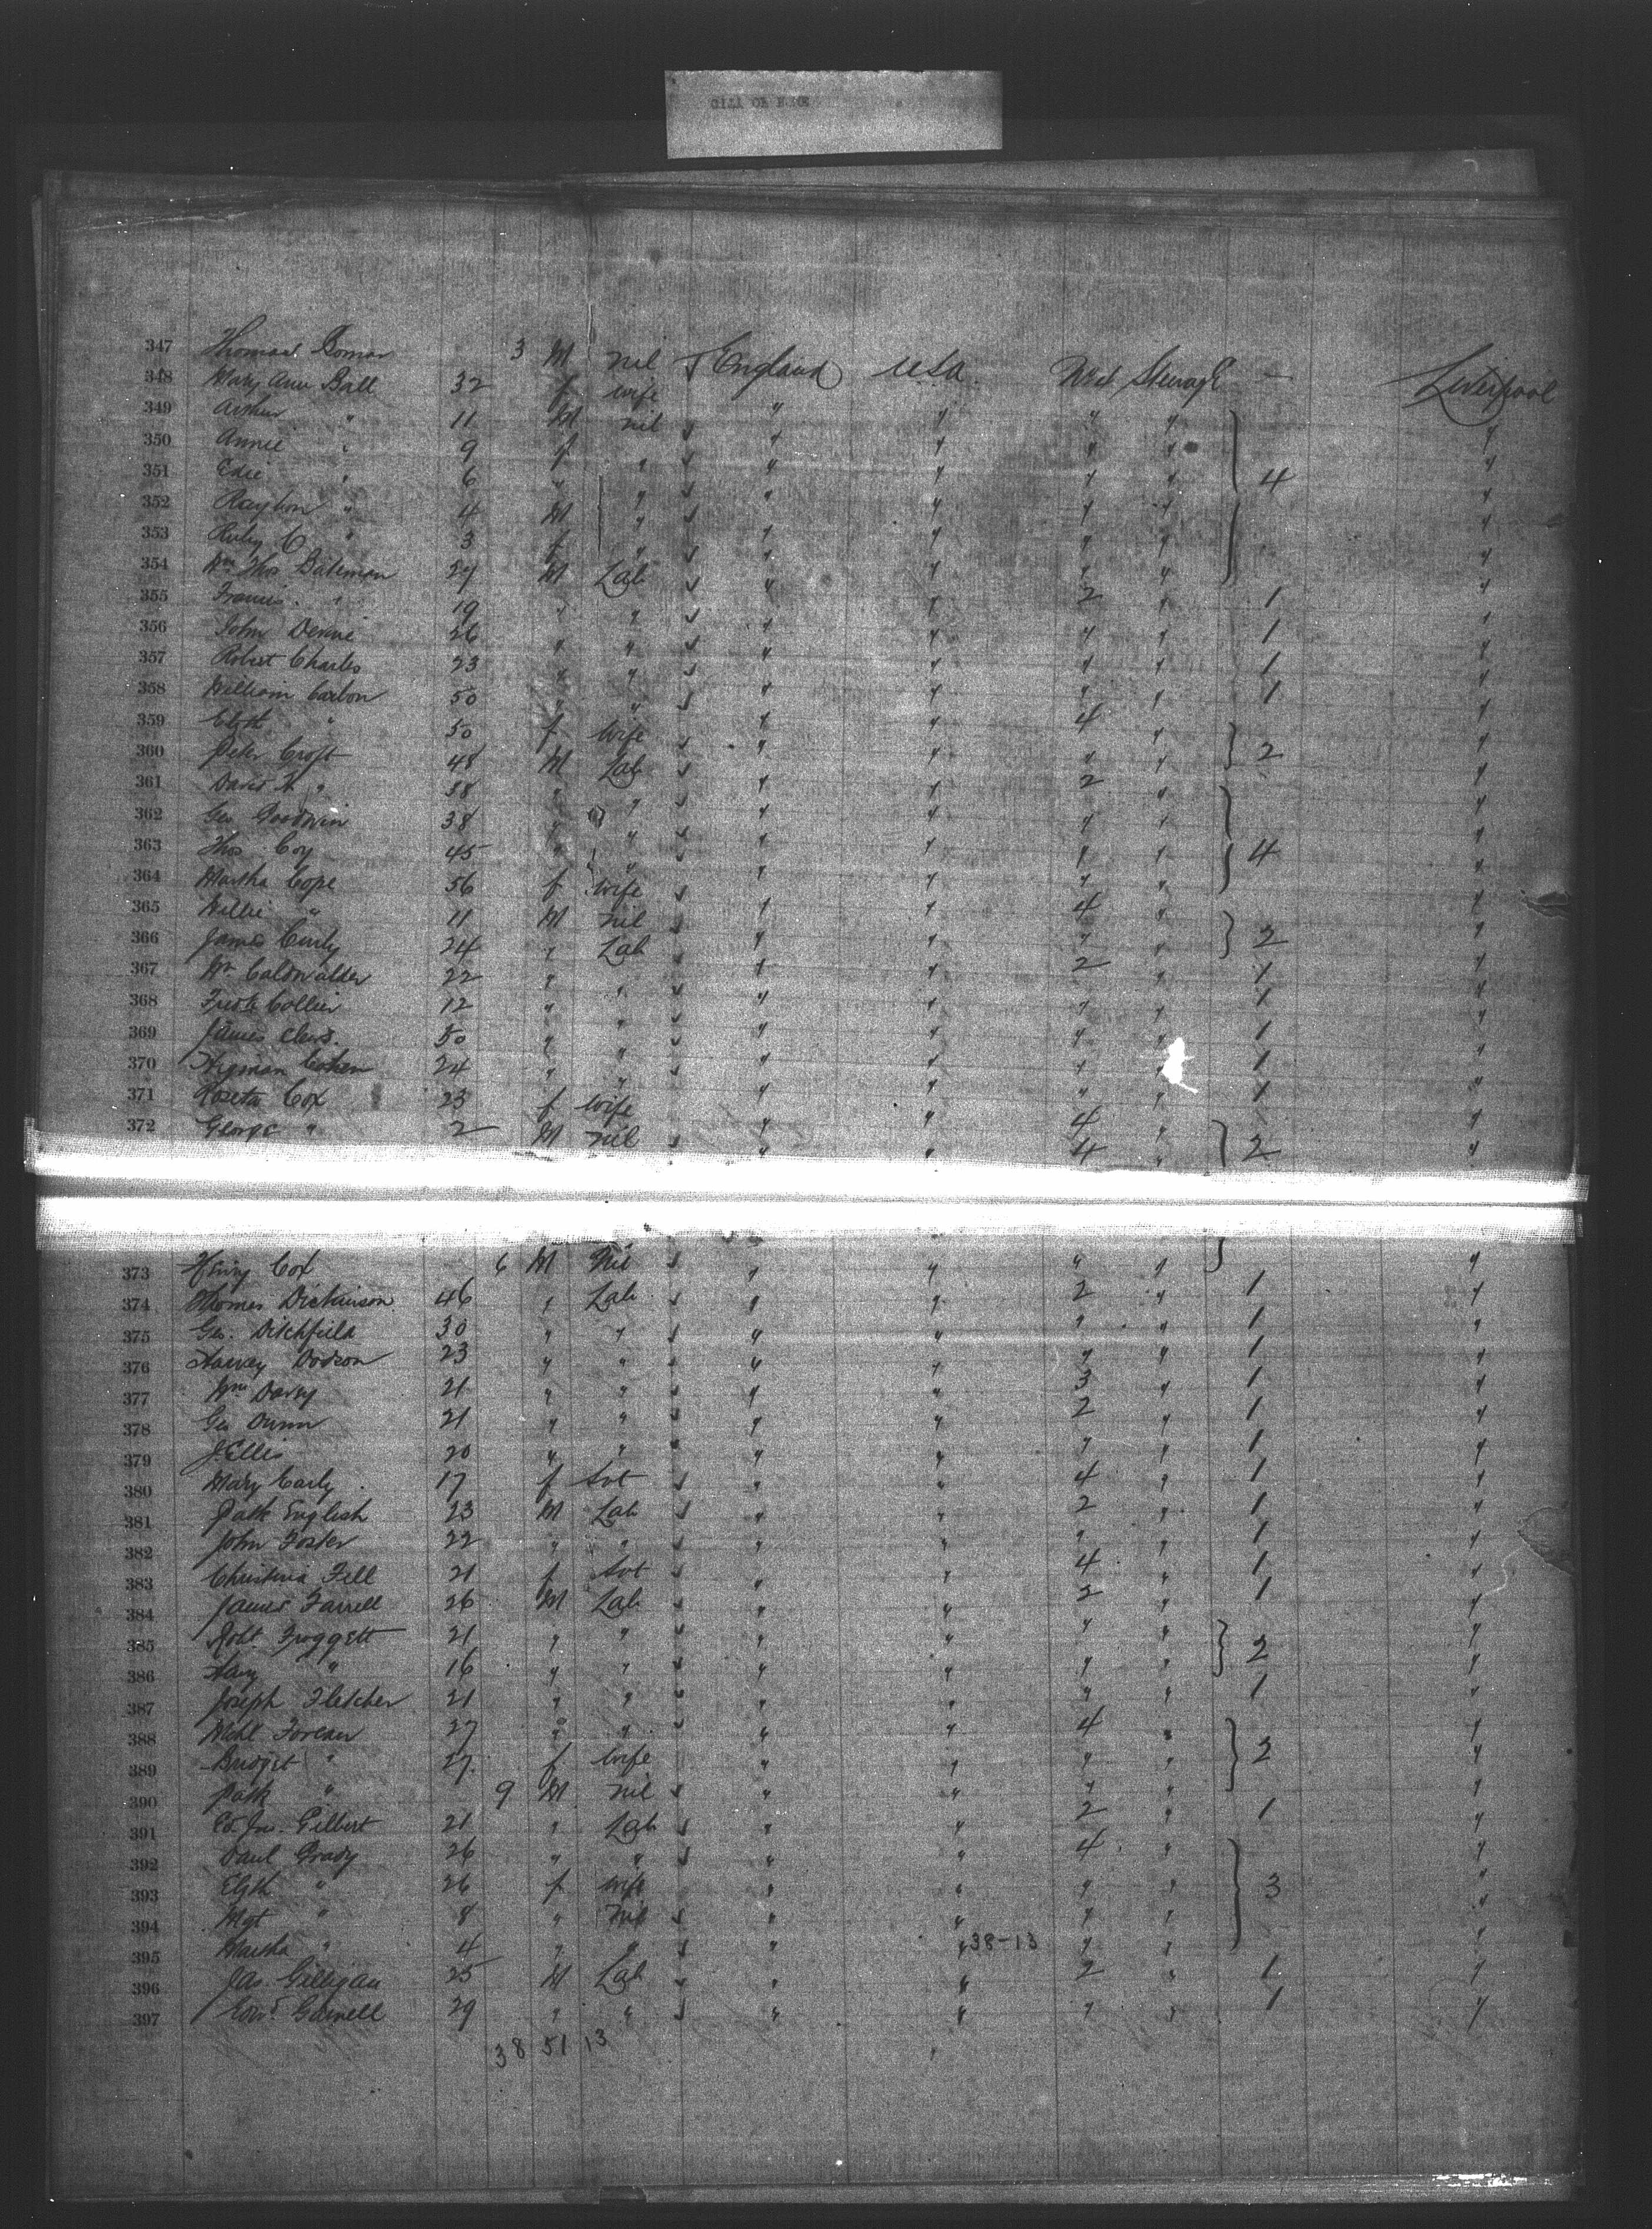 347 Thomas Boman 3 M nil England USA West Steerage - Liverpool
348 Mary Ann Ball 32 f wife " " " " "
349 Arthur " 11 M nil " " " " "
350 Annie " 9 f " " " " " "
351 Edie " 6 " " " " " " 4 "
352 " 4 M " " " " " "
353 Ruby C " 3 f " " " " " "
354 Wm Thos Bateman 27 M Lab " " 2 " 1 "
355 Francis " 19 " " " " " " 1 "
356 John 26 " " " " " " 1 "
357 Robert Charles 23 " " " " " " 1 "
358 William Carbon 50 " " " " 4 " "
359 " 50 f wife " " " " 2 "
360 Peter Croft 48 M Lab " " 2 " "
361 David H " 38 " " " " " " "
362 Geo Goodwin 38 " " " " " " 4 "
363 Thos Coy 45 " " " " " " "
364 Martha Cope 56 f wife " " 4 " "
365 Willie " 11 M nil " " " " 2 "
366 James Curly 24 " Lab " " 2 " 1 "
367 Wm 22 " " " " " " 1 "
368 Fredk Collier 12 " " " " " " 1 "
369 James 50 " " " " " " 1 "
370 Cohen 24 " " " " " " 1 "
371 Roseta Cox 23 f wife " " 4 " "
372 George " 2 M nil " " 4 " 2 "
373 Henry Cox 6 M Nil " " " " "
374 Thomas Dickinson 46 " Lab " " 2 " 1 "
375 Geo. Ditchfield 30 " " " " " " 1 "
376 Harvey Dodson 23 " " " " " " 1 "
377 Wm Davy 21 " " " " 3 " 1 "
378 Geo Dunn 21 " " " " 2 " 1 "
379 J. Ellis 20 " " " " " " 1 "
380 Mary Early 17 f Svt " " 4 " 1 "
381 Patk English 23 M Lab " " 2 " 1 "
382 John Foster 22 " " " " " " 1 "
383 Christina Fell 21 f Svt " " 4 " 1 "
384 James Farrell 26 M Lab " " 2 " 1 "
385 Robt. Froggett 21 " " " " " " 2 "
386 " 16 " " " " " " "
387 Joseph Fletcher 21 " " " " " " 1 "
388 Michl 27 " " " " 4 " "
389 Bridget " 27 f wife " " " " 2 "
390 Patk " 9 M nil " " " " "
391 Ed. Jno. Gilbert 21 " Lab " " 2 " 1 "
392 Paul Grady 26 " " " " 4 " "
393 Elzth " 26 f wife " " " " 3 "
394 Mgt " 8 " Nil " " " " "
395 Martha " 4 " " " " 38-13 " " "
396 Jas. Gilligan 25 M Lab " " 2 " 1 "
397 Edwd. 29 " " " " " " 1 "
38 51 13